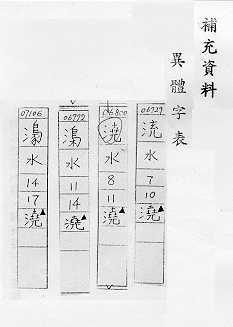 補充資料
異體字表
06727
水
7
10
澆
06800
澆
水
8
11
澆
06772
水
11
14
澆
07106
水
14
17
澆